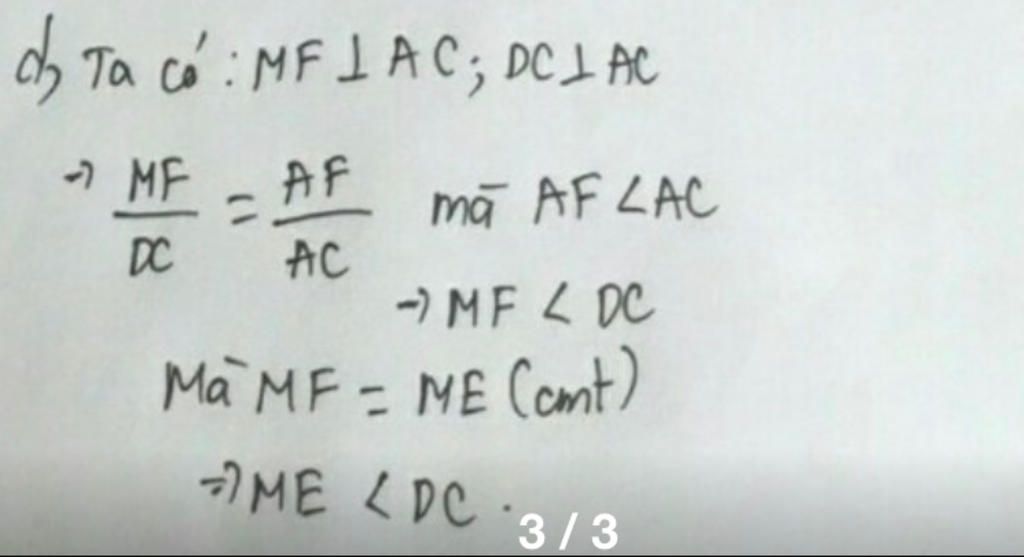 d, Ta có: MF ⊥ AC; DC ⊥ AC
→ MF/DC = AF/AC mà AF < AC
→ MF < DC
Mà MF = ME (cmt)
→ ME < DC.
3 / 3